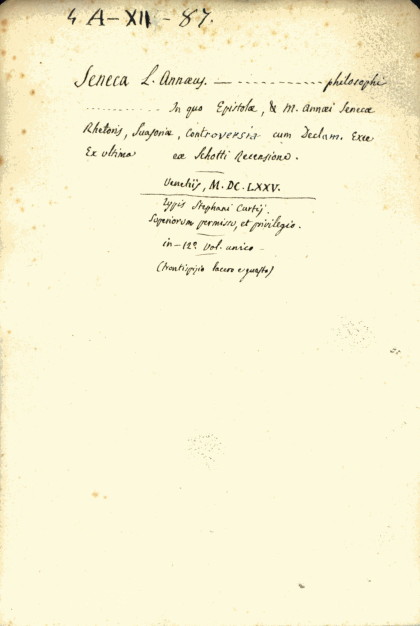 4 A-XII-87.
Seneca L. Annæus. — - - - - - - - - - - philosophi
- - - - - - - - - - - In quo Epistolæ, & M. Annæi Senecæ
Rhetoris, Suasoriæ, Controversiæ cum Declam. Exce
Ex ultima eæ Schotti Recensione.
Venetijs, M.DC.LXXV.
Typis Stephani Curtij.
Superiorum permissu, et privilegio.
in-12º Vol. unico
(Frontispizio lacero e guasto)